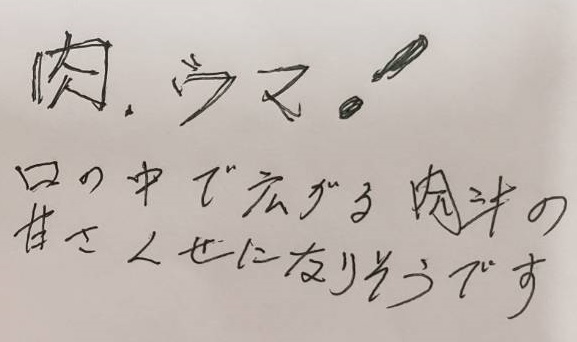 肉、ウマ!
口の中で広がる肉汁の
甘さくせになりそうです